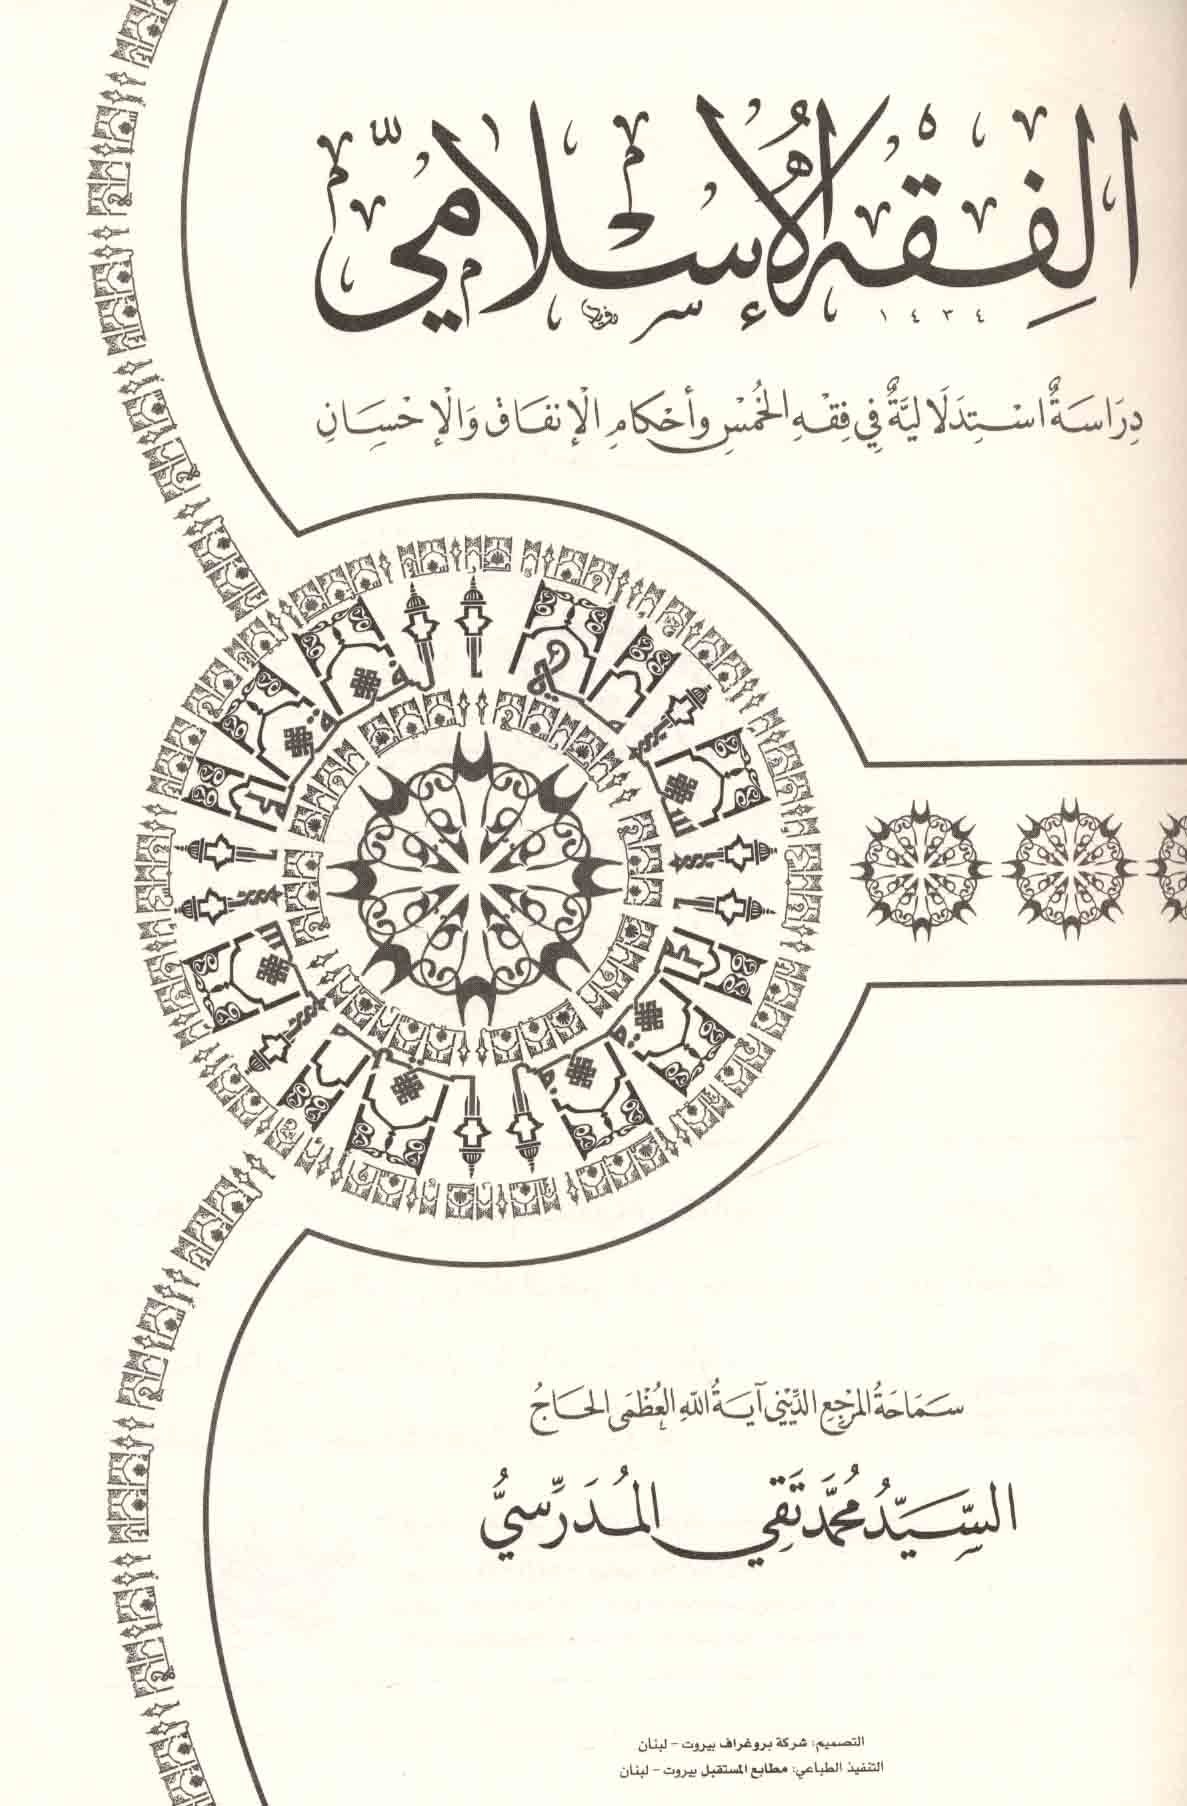 الفِقه الإسلاميّ
١٤٣٤
دِرَاسَةٌ اسْتِدلَاليَّةٌ في فِقْهِ الخُمْسِ وأحْكامِ الْإنفَاق وَالْإحْسِانِ
سَمَاحَةُ المَرْجِعِ الدِّيْني آيَةُ اللّهِ العُظْمَى الحَاجُ
السَّيِّدُ مُحَمَّد تَقي المُدَرِّسيُّ
التصميم: شركة بروغراف بيروت - لبنان
التنفيذ الطباعي: مطابع المستقبل بيروت - لبنان